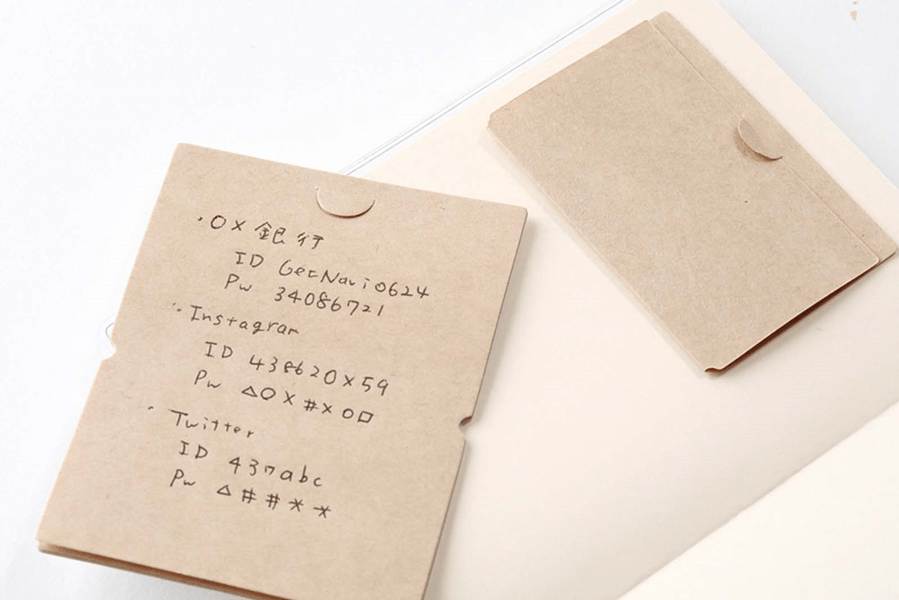 ・○×銀行
ID GetNavi0624
Pw 34086721
・Instagram
ID 438620×59
Pw △○×#×○□
・Twitter
ID 437abc
Pw △##**